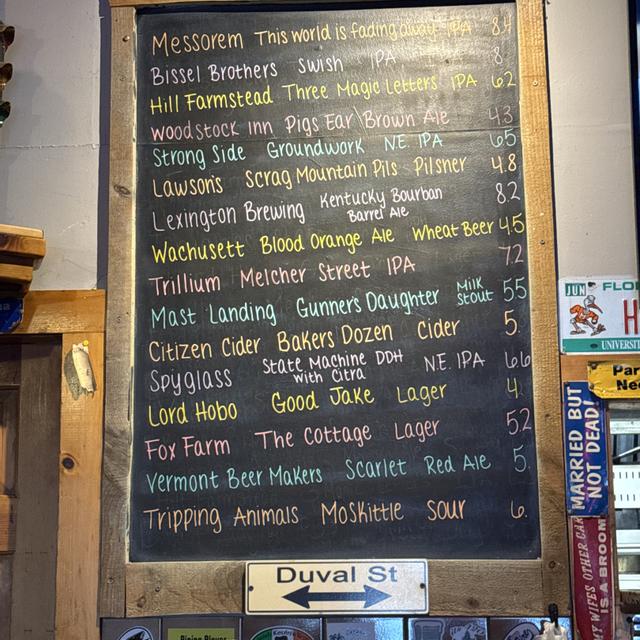 Messorem This world is fading away IPA 8.4
Bissel Brothers Swish IPA 8
Hill Farmstead Three Magic Letters IPA 6.2
Woodstock Inn Pigs Ear Brown Ale 4.3
Strong Side Groundwork N.E. IPA 6.5
Lawson's Scrag Mountain Pils Pilsner 4.8
Lexington Brewing Kentucky Bourban Barrel Ale 8.2
Wachusett Blood Orange Ale Wheat Beer 4.5
Trillium Melcher Street IPA 7.2
Mast Landing Gunner's Daughter Milk Stout 5.5
Citizen Cider Bakers Dozen Cider 5.
Spyglass State Machine DDH with Citra N.E. IPA 6.6
Lord Hobo Good Jake Lager 4.
Fox Farm The Cottage Lager 5.2
Vermont Beer Makers Scarlet Red Ale 5.
Tripping Animals Moskittle Sour 6.
Duval St
JUN FLO
H
UNIVERSIT
Par
Nee
MARRIED BUT
NOT DEAD!
WIFES OTHER CAR
IS A BROOM